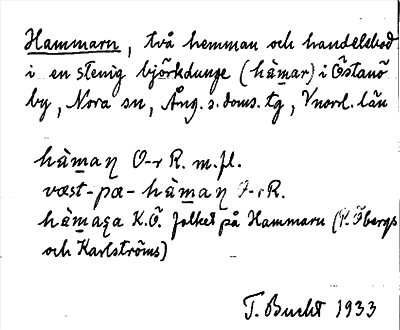 Hammarn, två hemman och handelsbod
i en stenig björkdunge (hàmar) i Östanö
by, Nora sn, Ång. s. doms. tg, Vnorrl. län
hàmaɳ O-r R. m.fl.
væst-pa-hàmaɳ O-r R.
hàmaga K.Ö. folket på Hammarn (K. Öbergs
och Karlströms)
T. Bucht 1933